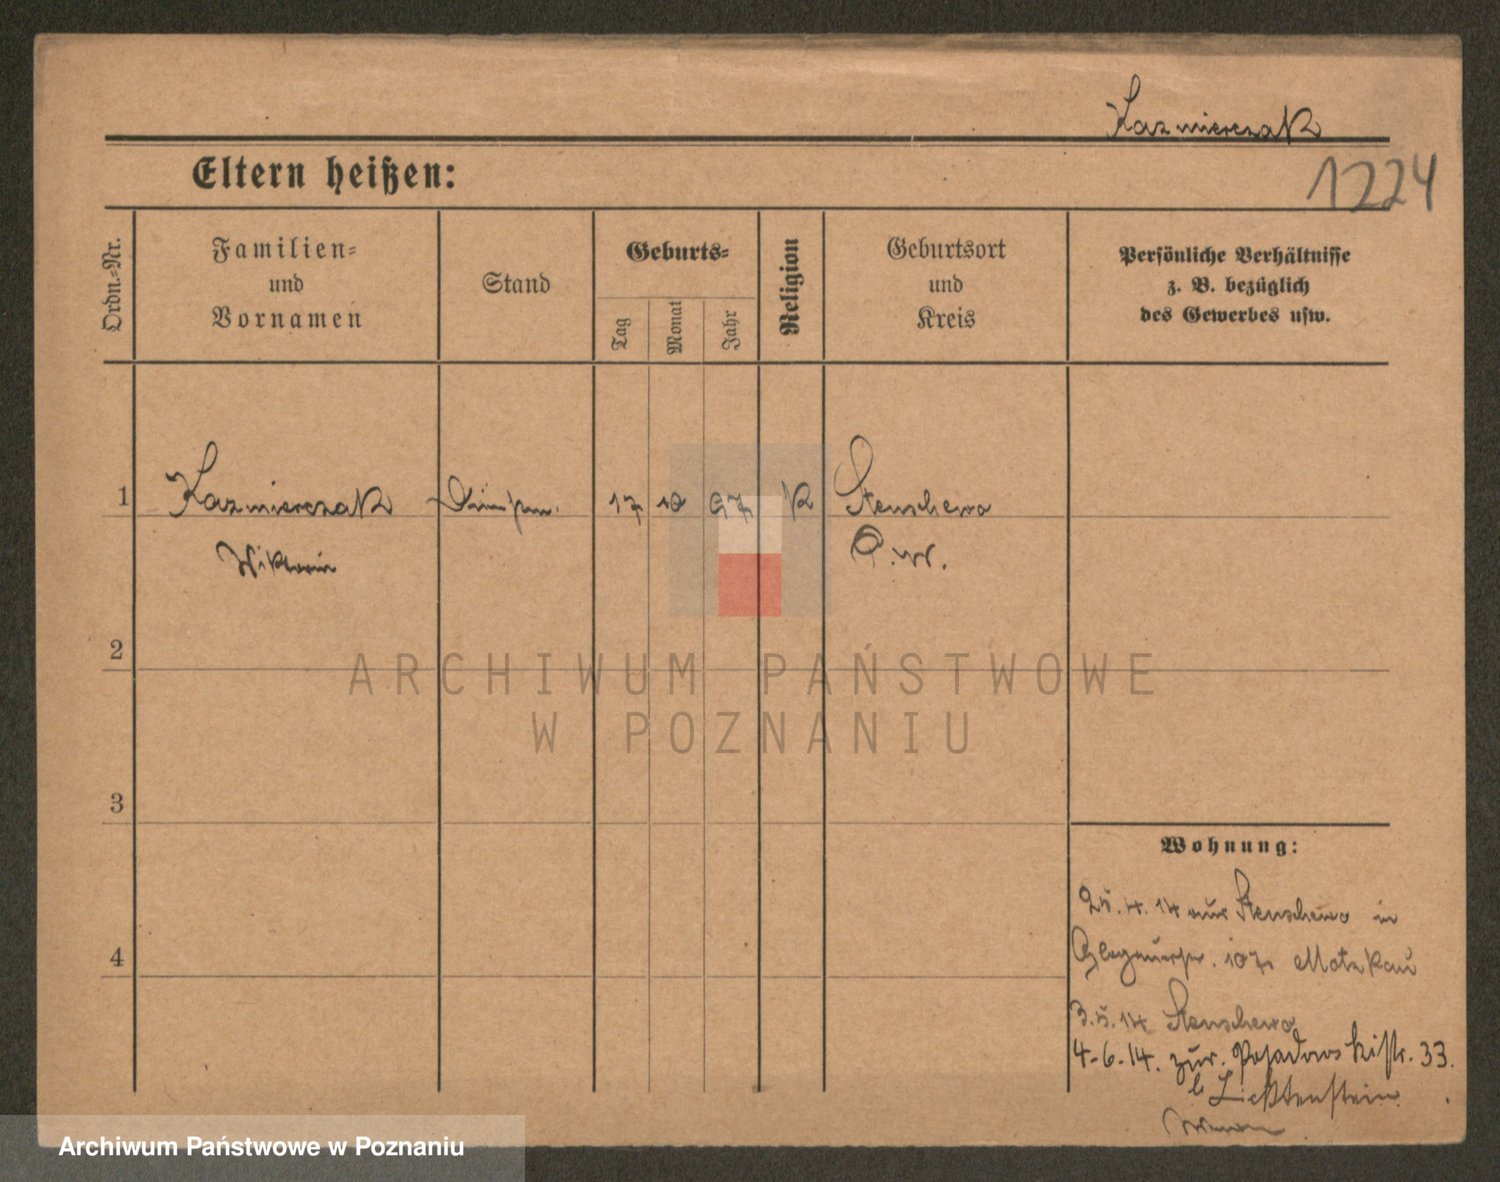 Kazmierczak
1224
Eltern heißen:
Ordn.-Nr.
Familien-
und
Vornamen
Stand
Geburts-
Tag
Monat
Jahr
Religion
Geburtsort
und
Kreis
Persönliche Verhältnisse
z. B. bezüglich
des Gewerbes usw.
1
Kazmierczak
17
10
97
K
Stenschewo
Wiktoria
P. W.
2
ARCHIWUM PAŃSTWOWE
W POZNANIU
3
Wohnung:
4
25. 4. 14 aus Stenschewo in
107 Motzkau
3. 5. 14 Stenschewo
4-6-14. zur. Posadowskistr. 33.
b Lichtenstein
Archiwum Państwowe w Poznaniu